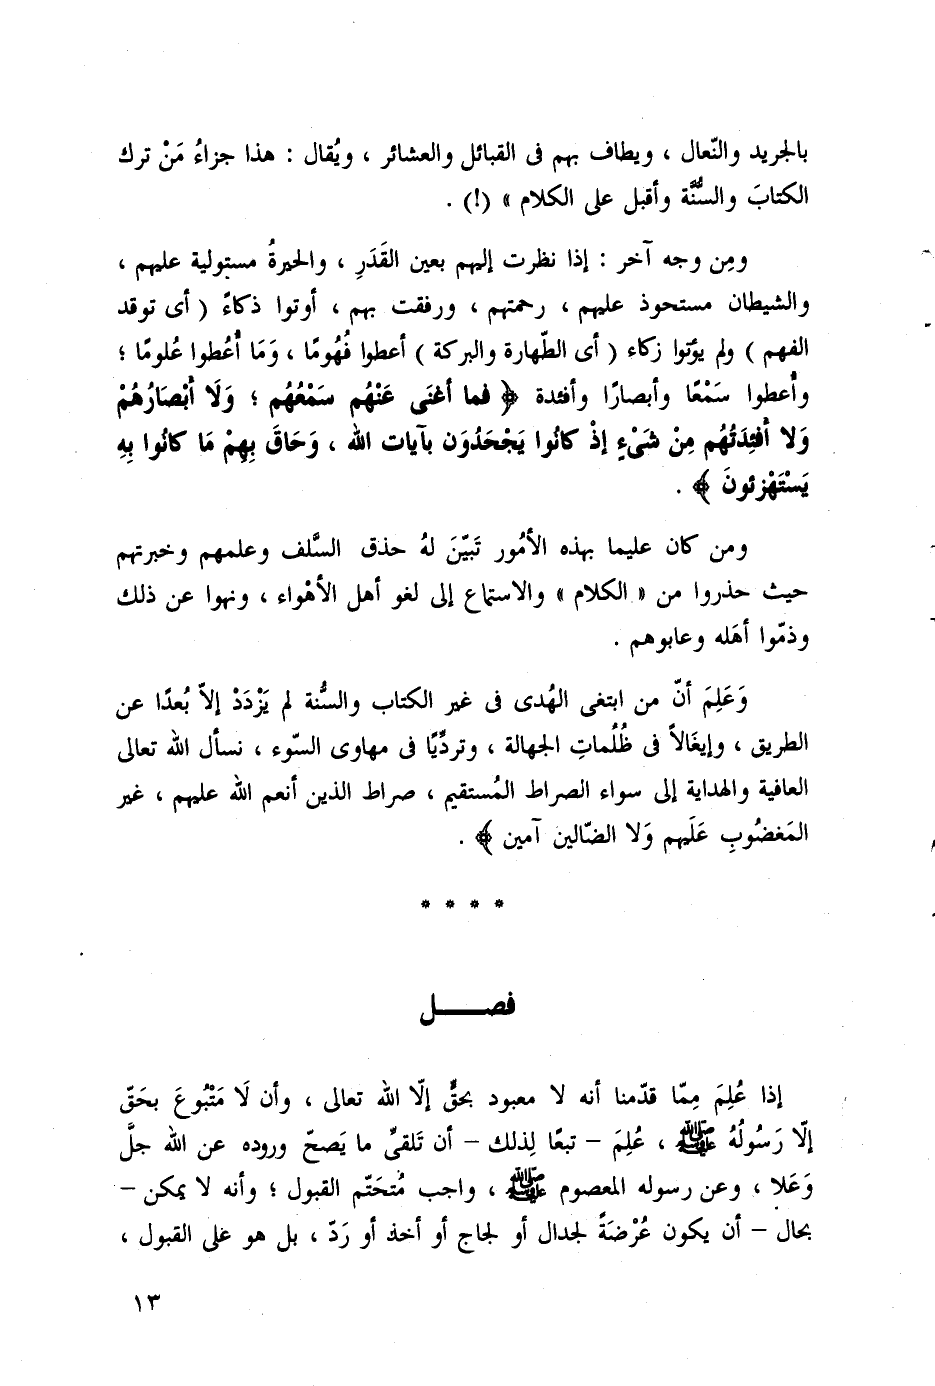 بالجريد والنّعال ، ويطاف بهم فى القبائل والعشائر ، ويُقال : هذا جزاءُ مَنْ ترك
الكتابَ والسُّنَّة وأقبل على الكلام » (!) .
ومِن وجه آخر : إذا نظرت إليهم بعين القَدَرِ ، والحيرةُ مستولية عليهم ،
والشيطان مستحوذ عليهم ، رحمتهم ، ورفقت بهم ، أوتوا ذكاءً ( أى توقد
الفهم ) ولم يؤتوا زكاء ( أى الطّهارة والبركة ) أعطوا فُهُومًا ، وَمَا أُعُطوا عُلومًا ؛
وأُعطوا سَمْعًا وأبصارًا وأفئدة ﴿ فما أغنَى عَنْهُم سَمْعُهُم ؛ وَلَا أَبْصَارُهُمْ
وَلا أَفئِدَتُهُم مِنْ شَىْءٍ إذْ كانُوا يَجْحَدُوَن بآيات الله ، وَحَاقَ بِهِمْ مَا كانُوا بِهِ
يَسْتَهْزِئونَ ﴾ .
ومن كان عليما بهذه الأمُور تَبيّنَ لهُ حذق السَّلف وعلمهم وخبرتهم
حيث حذروا من « الكلام » والاستماع إلى لغو أهل الأهْواء ، ونهوا عن ذلك
وذمّوا أهَله وعابوهم .
وَعَلِمَ أنّ من ابتغى الهُدى فى غير الكتاب والسُّنة لم يَزْدَدْ إلاّ بُعدًا عن
الطريق ، وإيغَالاً فى ظُلُماتِ الجهالة ، وتردِّيًا فى مهاوى السّوء ، نسأل الله تعالى
العافية والهداية إلى سواء الصراط المُستقيم ، صراط الذين أنعم الله عليهم ، غير
المَغضُوبِ عَلَيهم وَلا الضّالين آمين ﴾ .
* * * *
فصـــــل
إذا عُلِمَ مِمّا قدّمنا أنه لا معبود بحقٍّ إلّا الله تعالى ، وأن لَا مَتْبُوعَ بحَقّ
إلّا رَسُولُهُ ﷺ ، عُلِمَ – تبعًا لِذلك – أن تَلقىِّ ما يَصحّ وروده عن الله جلَّ
وَعَلا ، وعن رسوله المعصوم ﷺ ، واجب مُتحَتّم القبول ؛ وأنه لا يمكن –
بحال – أن يكون عُرْضَةً لجدال أو لجاج أو أخذ أو رَدّ ، بل هو على القبول ،
١٣